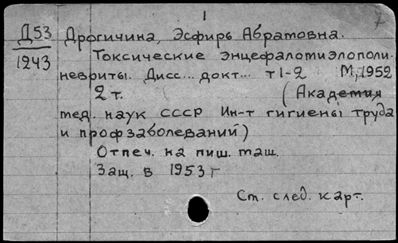 1
7
Д53 Дрогичина, Эсфирь Абрамовна.
1243 Токсические энцефаломиэлополи-
невриты. Дисс... докт... т1-2 М, 1952
2 т. (Академия
мед. наук СССР Ин-т гигиены труда
и профзаболеваний)
Отпеч. на пиш. маш.
Защ. в 1953 г
Ст. след. карт.